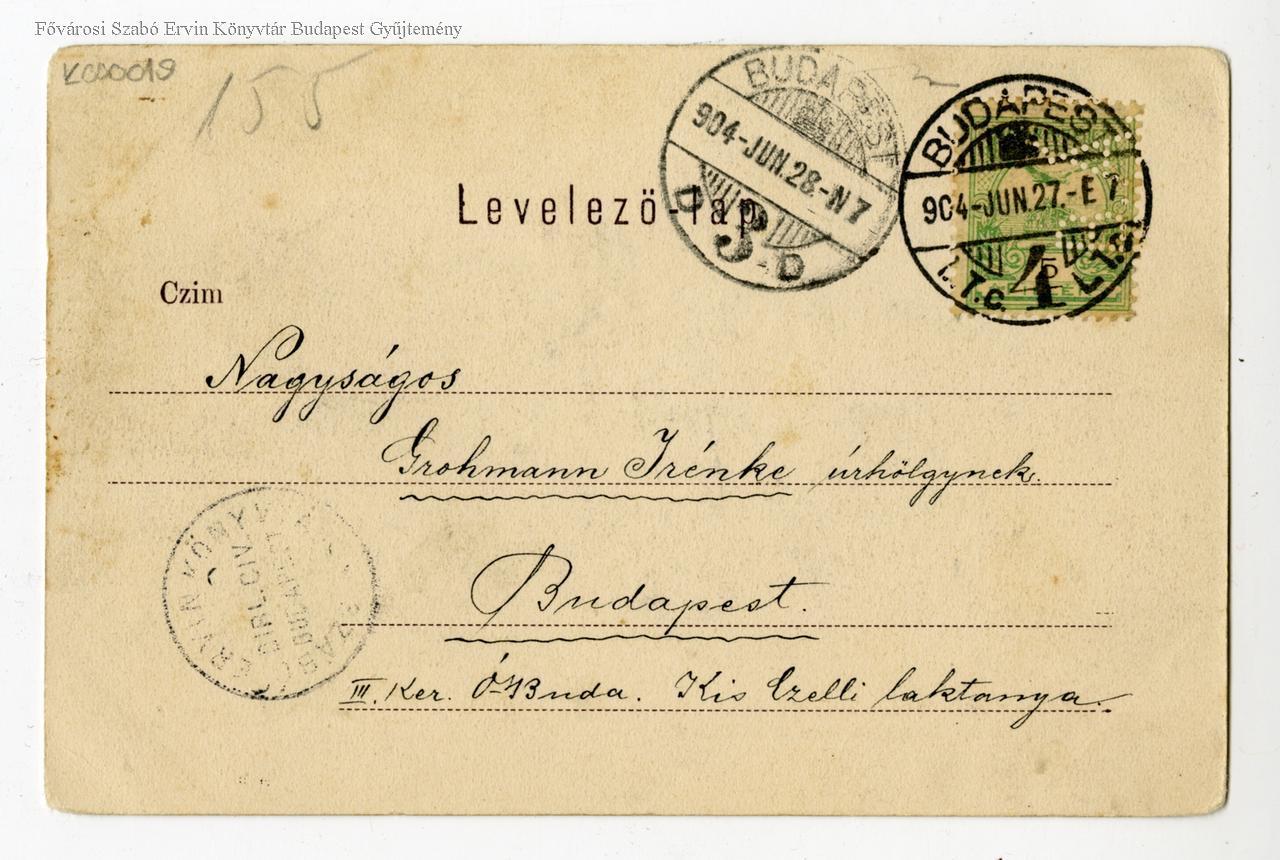 Fővárosi Szabó Ervin Könyvtár Budapest Gyűjtemény
155
BUDAPEST
904-JUN.28.-N7
D 3 -D
BUDAPEST
904-JUN.27.-E 7
4
5
Levelező-lap
Czim
Nagyságos
Grohmann Irénke úrhölgynek.
Budapest.
III. Ker. Ó-Buda. Kis Czelli laktanya.